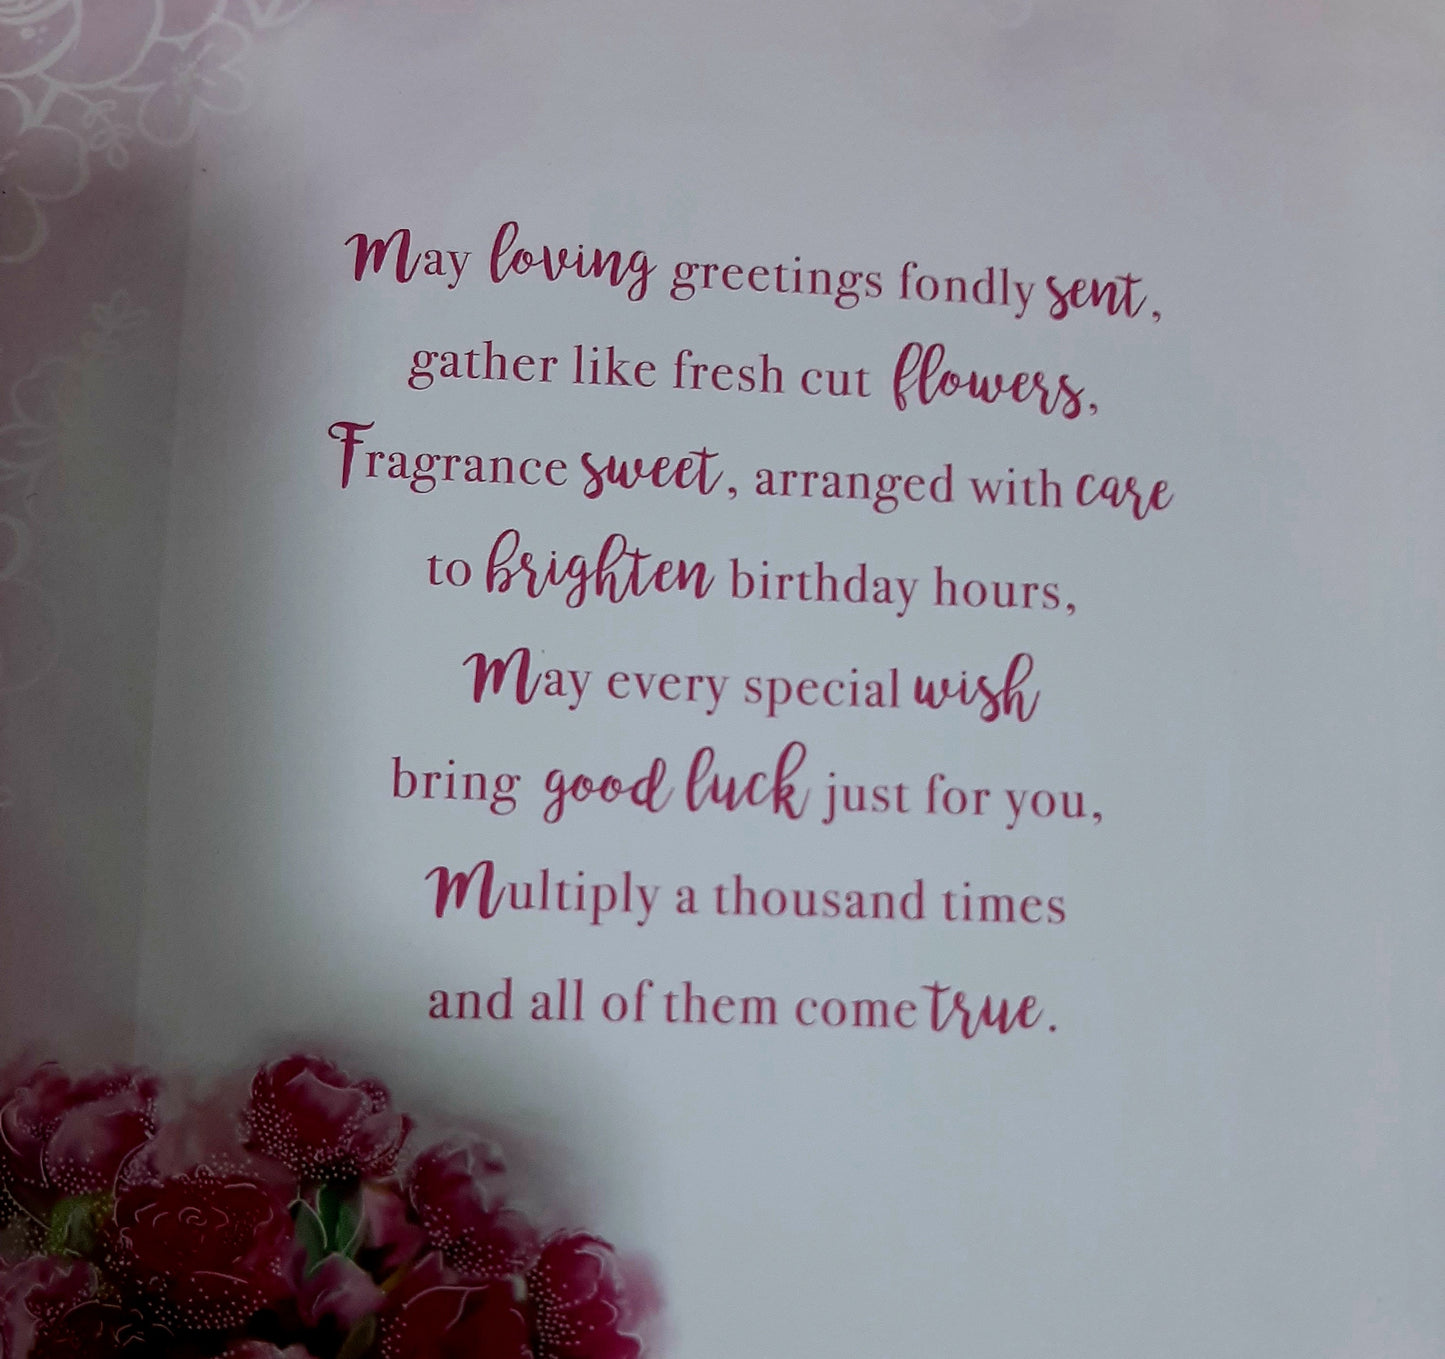 May loving greetings fondly sent,
gather like fresh cut flowers,
Fragrance sweet, arranged with care
to brighten birthday hours,
May every special wish
bring good luck just for you,
Multiply a thousand times
and all of them come true.